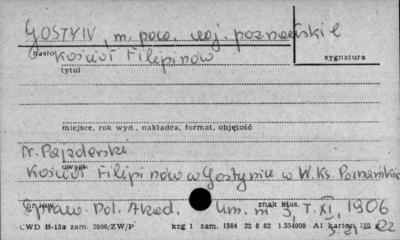 GOSTYŃ, m. pow. woj. poznańskie
hasło Kościół Filipinów
sygnatura
tytuł
miejsce, rok wyd., nakładca, format, objętość
N. Pajzderski
uwagi
Kościół Filipinów w Gostyniu w W. Ks. Poznańskim
znak klas.
Spraw. Pol. Akad. Um. T. XI, 1906
CWD B-15a zam. 2006/ZW/P kzg 1 zam. 1564 22 8 62 1.554000 A1 karton